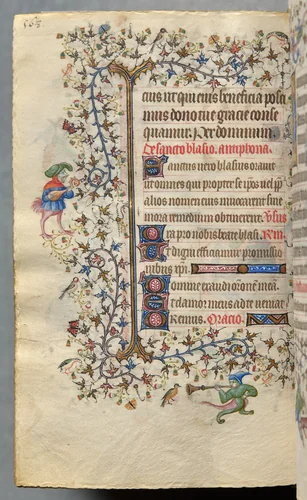 eius ut qui eius beneficia posci
mus dono tue gracie conse
quamur. Per dominum
De sancto blasio. antiphona.
Sanctus vero blasius orauit
ut omnes qui propter se ipos uel pp
alios nomen eius inuocarent sine
mora remedium obtinerent. Vsus
Ora pro nobis beate blasi. Rm.
Ut digni efficiamur promissio
nibus xpi.
Domine exaudi orione mea
Et clamor meus ad te ueniat
Oremus. Oracio.